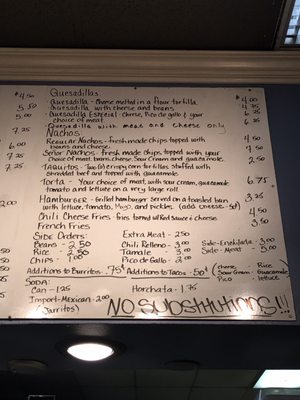 Quesadillas
$4.50
Quesadilla - Cheese melted in a flour tortilla $4.00
5.50
Quesadilla with cheese and beans 4.75
5.00
Quesadilla Especial - Cheese, Pico de gallo & your choice of meat 6.25
Quesadilla with meat and cheese only 6.25
7.25
Nachos
Regular Nachos - fresh made chips topped with beans and cheese 4.50
6.00
Señor Nachos - fresh made chips topped with your choice of meat, beans, cheese, Sour Cream and guacamole. 7.50
7.25
Taquitos - Two (2) crispy corn tortillas, stuffed with Shredded beef and topped with guacamole. 2.50
7.25
Torta - Your choice of meat, with sour cream, guacamole, tomato and lettuce on a very large roll. 6.75
2.00
Hamburger - Grilled hamburger served on a toasted bun with lettuce, tomato, Mayo, and pickles. (add cheese - 50¢) 3.25
Chili Cheese Fries - fries topped w/ Red sauce & cheese 4.50
French Fries 3.50
Side Orders:
Beans - 2.50
Rice - 2.50
Chips - 1.00
Extra Meat - 2.50
Chili Relleno - 3.00
Tamale - 3.00
Pico de Gallo - 2.00
Side-Enchilada - 3.00
Side-Meat - 5.00
Additions to Burritos - .75¢
Additions to Tacos - .50¢
(Cheese Rice
Sour Cream Guacamole
Pico lettuce
Soda:
Can - 1.25
Horchata - 1.75
Import-Mexican - 2.00
(Jarritos)
NO SUBSTITUTIONS!!!